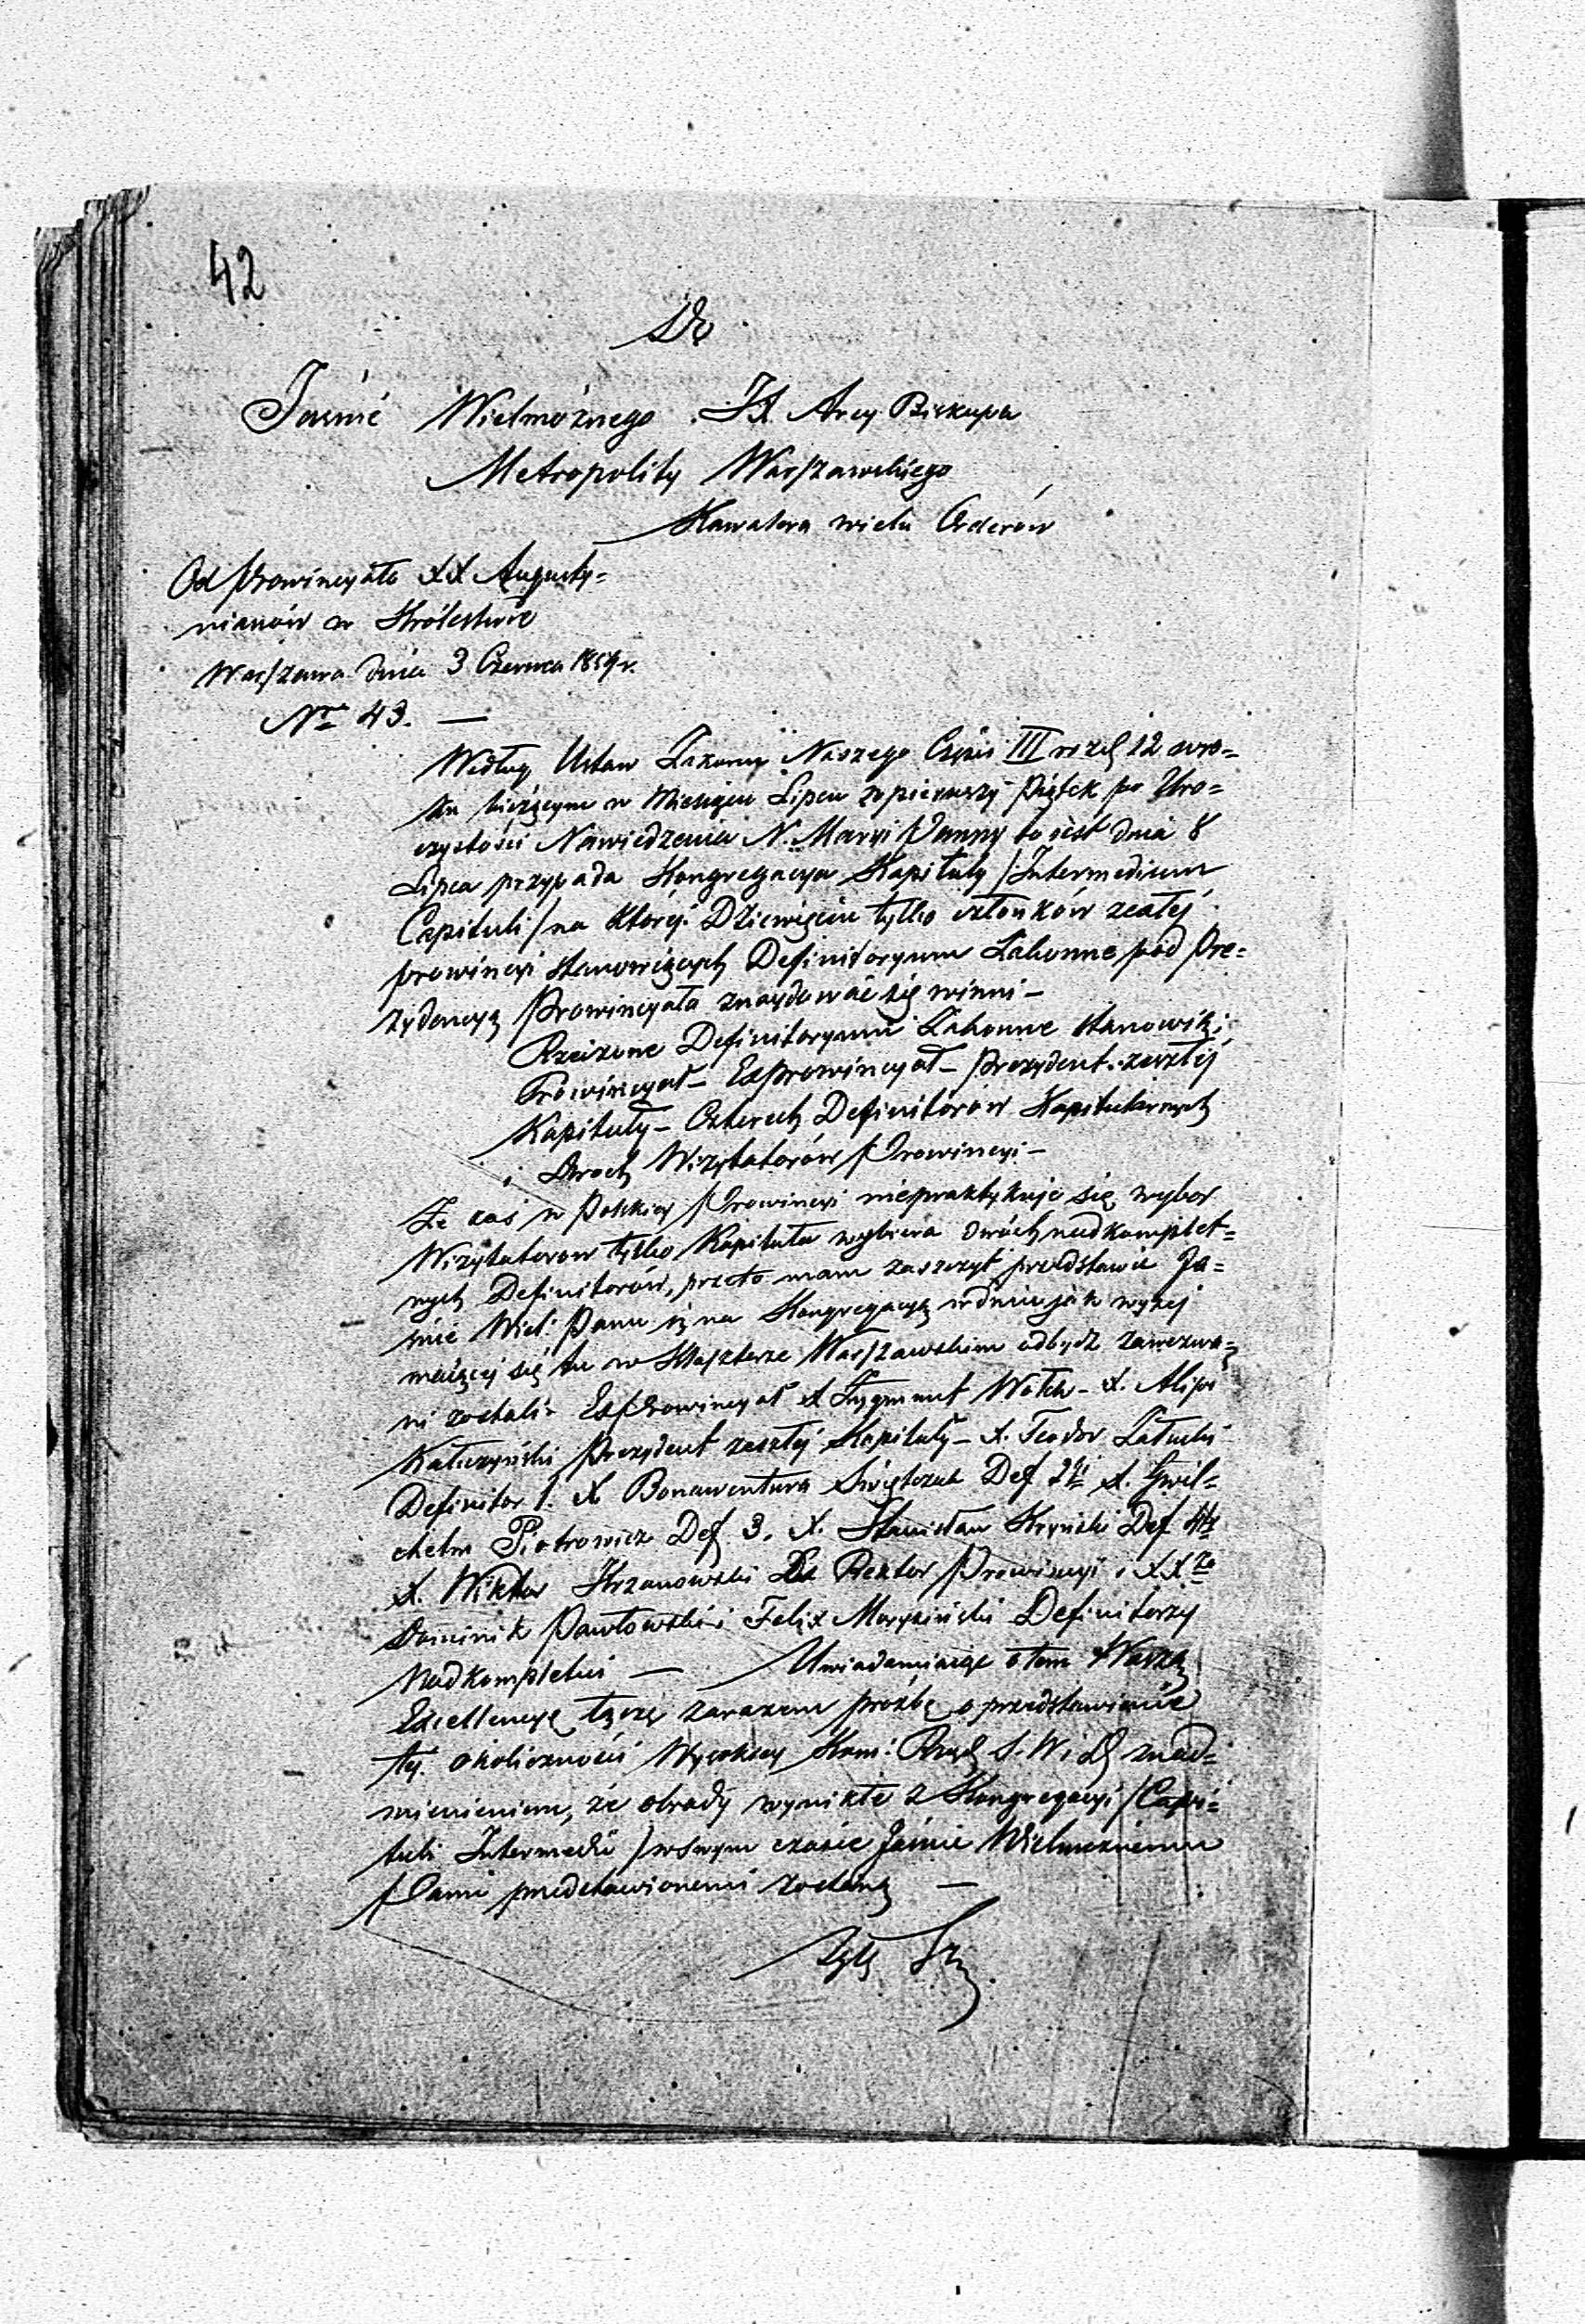 42
Do
Jaśnie Wielmożnego JX Arcy Biskupa
Metropolity Warszawskiego
Kawalera wielu Orderów
Od Prowincyała XX Augusty-
nianów w Królestwie
Warszawa dnia 3 Czerwca
No 43. —
Według Ustaw Zakonu Naszego Części III rozd 12 w ro-
ku bieżącym w Miesiącu Lipcu w pierwszy Piątek po Uro-
czystości Nawiedzenia N. Maryi Panny to jest dnia 8
Lipca przypada Kongregacya Kapituły /Intermedium
Capituli/ na której Dziewięciu tylko członków z całej
prowincyi stanowiących Definitoryum Zakonne pod Pre-
zydencyą Prowincyała znaydować się winni —
Rzeczone Definitoryum Zakonne stanowią;
Prowincyał — ExProwincyał — Prezydent zeszłej
Kapituły — Czterech Definitorów Kapitularnych
i Dwóch Wizytatorów Prowincyi —
Że zaś w Polskiey Prowincyi niepraktykuje się wybor
Wizytatorow tylko Kapituła wybiera dwóch nadkomplet-
nych Definitorów, przeto mam zaszczyt przedstawić Ja-
śnie Wiel: Panu iż na Kongregacyą w dniu jak wyżej
maiącej się tu w Klasztorze Warszawskim odbydź zawezwa-
ni zostali: ExProwincyał X Zygmunt Wołek — X. Alipi
Kałuzyński Prezydent zeszłej Kapituły — X. Teodor
Definitor 1. X Bonawentura Świątczak Def 2gi X. Gwil-
chelm Piotrowicz Def 3. X. Stanisław Kryński Def 4ty
X. Wiktor Krzanowski Ex Rektor Prowincyi i XX
Dominik Pawłowski i Felix Definitorzy
Nadkompletni — Uwiadamiając o tem Waszą
Excellencyą łączę zarazem prośbę o przedstawienie
tej okoliczności Wysokiey Kom: Rząd S. W i D z nad-
mienieniem, że obrady wynikłe z Kongregacyi /Capi-
tuli Intermedii/ w swym czasie Jaśnie Wielmożnemu
Panu przedstawionemi zostaną —